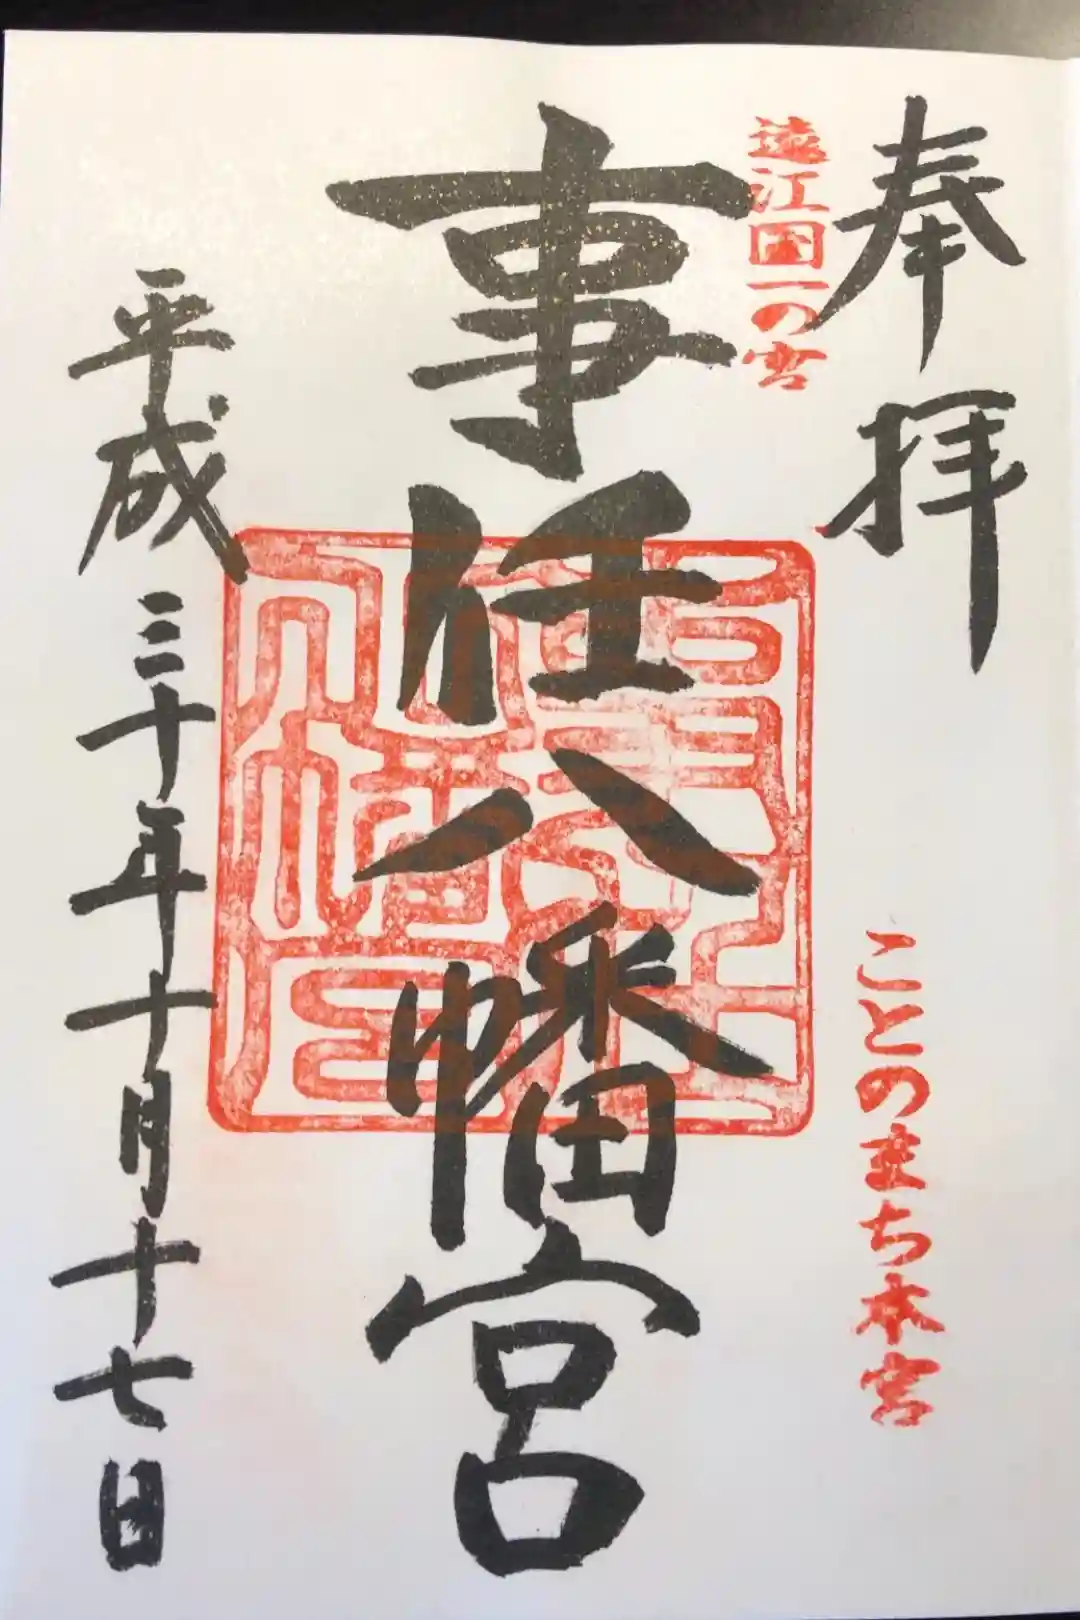 奉拝
ことのまち本宮
遠江国一の宮
事任八幡宮
平成三十年十月十七日